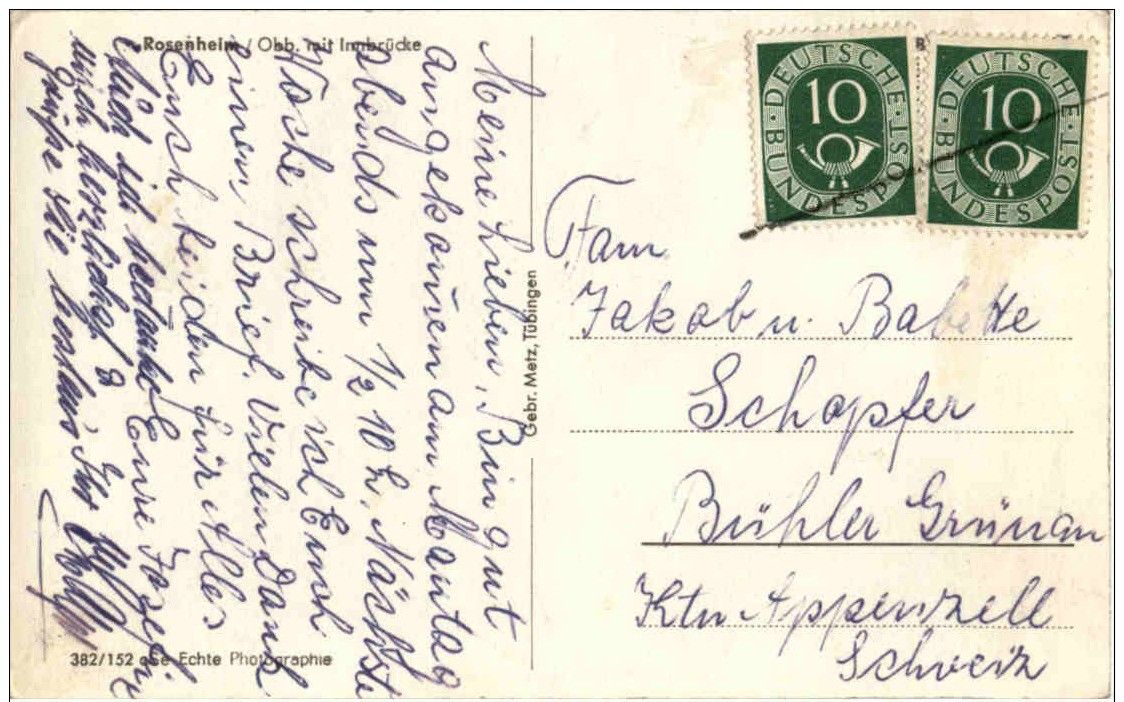 Rosenheim / Obb. mit Innbrücke
Meine Lieben, Bin gut
angekom̄en am Montag
abends um 1/2 10 h, Nächste
Woche schreibe ich Euch
einen Brief. Vielen Dank
Euch beiden für Alles
Auch ich bedanke
mich herzlichst &
grüße Sie bestens Ihr
382/152 Echte Photographie
Gebr. Metz, Tübingen
DEUTSCHE BUNDESPOST
10
DEUTSCHE BUNDESPOST
10
Fam.
Jakob u. Babette
Schopfer
Bühler Grünau
Ktn Appenzell
Schweiz